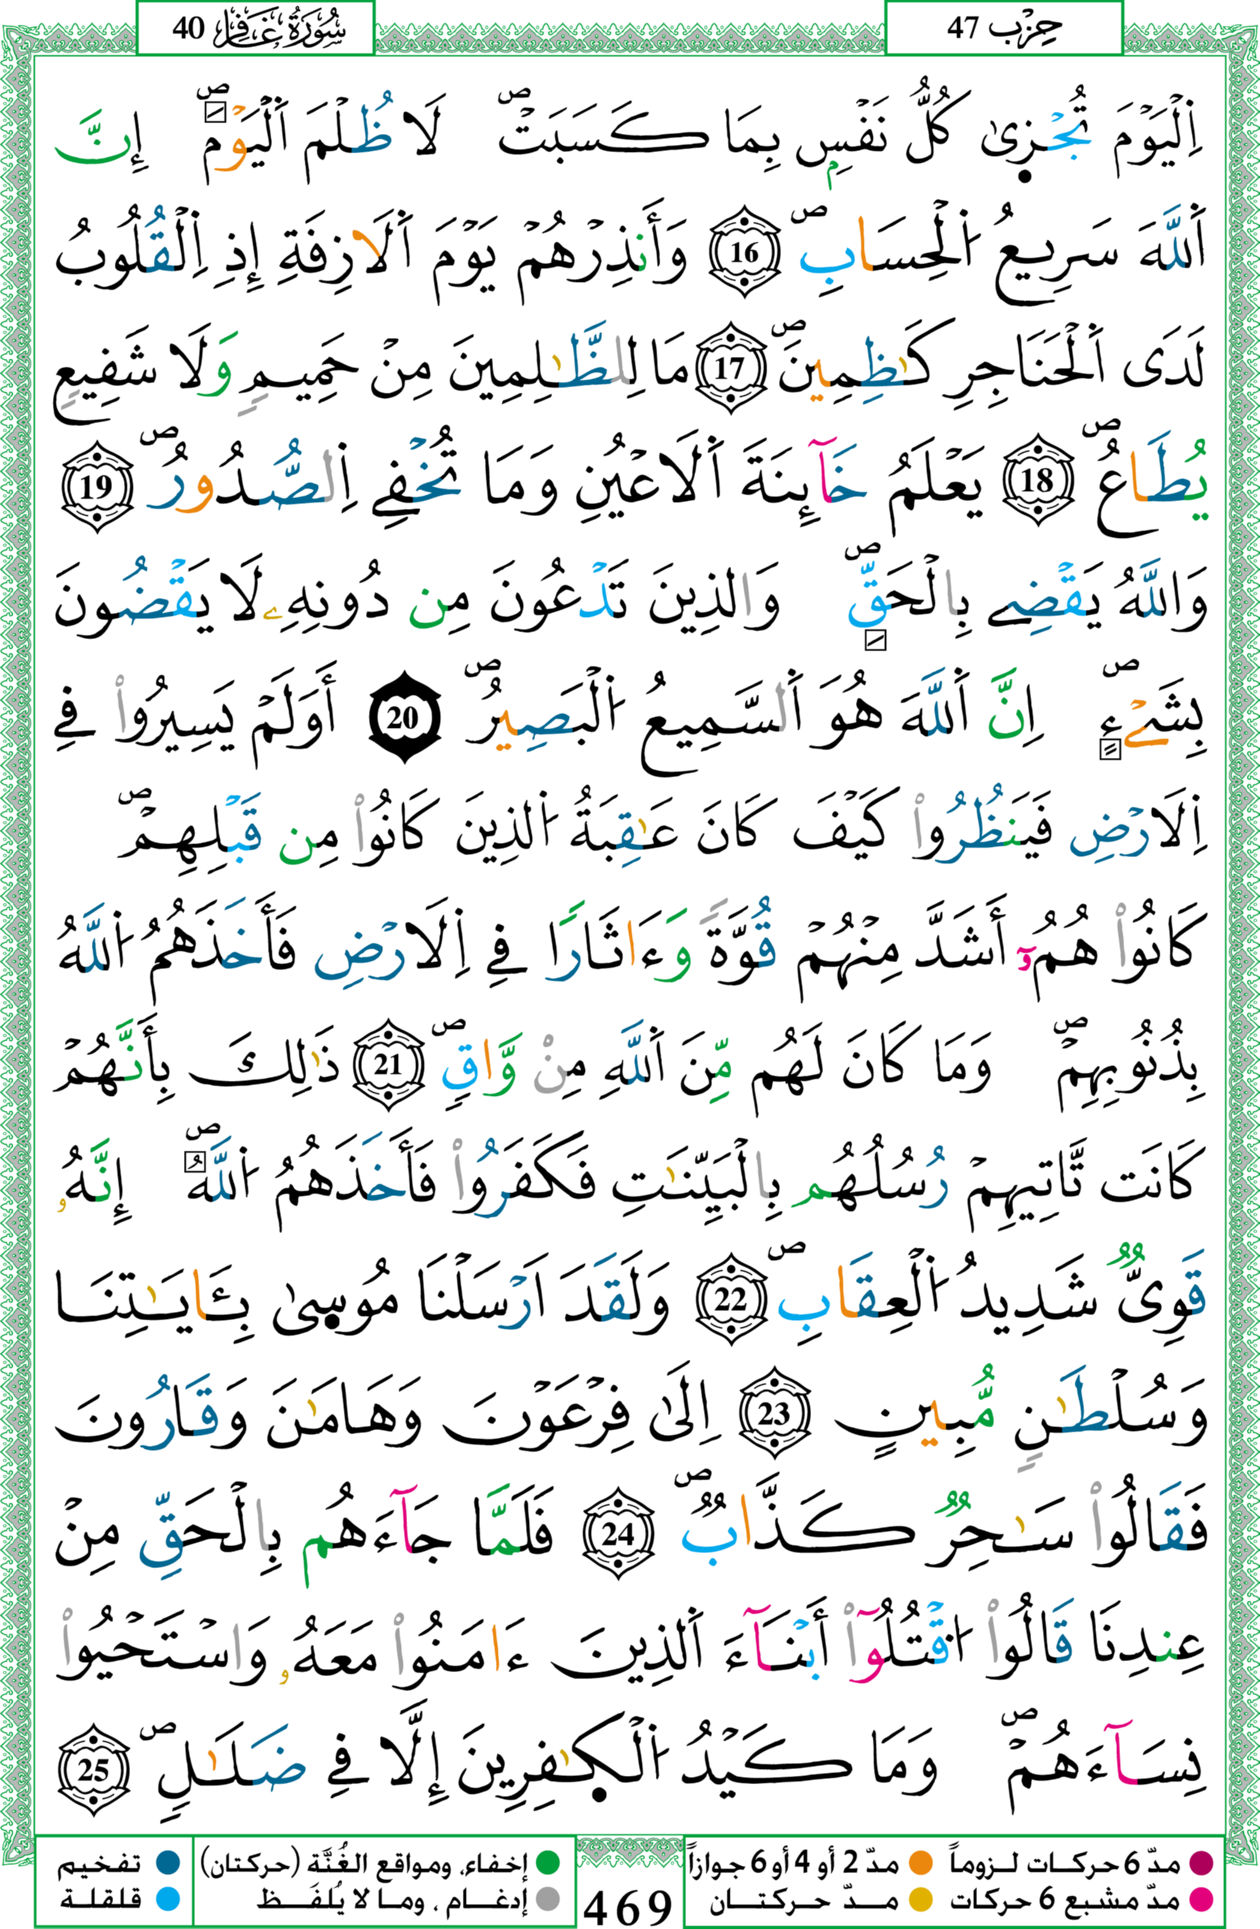 سُورَةُ غَافِر 40
حِزْب 47
اِ۬لْيَوْمَ تُجْزۭىٰ كُلُّ نَفْسِۢ بِمَا كَسَبَتْۖ لَا ظُلْمَ اَ۬لْيَوْمَۖ إِنَّ
اَ۬للَّهَ سَرِيعُ اُ۬لْحِسَابِۖ 16 وَأَنذِرْهُمْ يَوْمَ اَ۬لَازِفَةِ إِذِ اِ۬لْقُلُوبُ
لَدَى اَ۬لْحَنَاجِرِ كَٰظِمِينَۖ 17 مَا لِلظَّٰلِمِينَ مِنْ حَمِيمٖ وَلَا شَفِيعٖ
يُطَاعُۖ 18 يَعْلَمُ خَآئِنَةَ اَ۬لَاعْيُنِ وَمَا تُخْفِے اِ۬لصُّدُورُۖ 19
وَاللَّهُ يَقْضِے بِالْحَقِّۖ وَالذِينَ تَدْعُونَ مِن دُونِهِۦ لَا يَقْضُونَ
بِشَےْءٍۖ اِنَّ اَ۬للَّهَ هُوَ اَ۬لسَّمِيعُ اُ۬لْبَصِيرُۖ 20 أَوَلَمْ يَسِيرُواْ فِے
اِ۬لَارْضِ فَيَنظُرُواْ كَيْفَ كَانَ عَٰقِبَةُ اُ۬لذِينَ كَانُواْ مِن قَبْلِهِمْۖ
كَانُواْ هُمُۥٓ أَشَدَّ مِنْهُمْ قُوَّةٗ وَءَاثَارٗا فِے اِ۬لَارْضِ فَأَخَذَهُمُ اُ۬للَّهُ
بِذُنُوبِهِمْۖ وَمَا كَانَ لَهُم مِّنَ اَ۬للَّهِ مِنْ وَّاقٖۖ 21 ذَٰلِكَ بِأَنَّهُمْ
كَانَت تَّاتِيهِمْ رُسُلُهُم بِالْبَيِّنَٰتِ فَكَفَرُواْ فَأَخَذَهُمُ اُ۬للَّهُۖ إِنَّهُۥ
قَوِيّٞ شَدِيدُ اُ۬لْعِقَابِۖ 22 وَلَقَدَ اَرْسَلْنَا مُوسۭىٰ بِـَٔايَٰتِنَا
وَسُلْطَٰنٖ مُّبِينٍ 23 اِلَىٰ فِرْعَوْنَ وَهَامَٰنَ وَقَارُونَ
فَقَالُواْ سَٰحِرٞ كَذَّابٞۖ 24 فَلَمَّا جَآءَهُم بِالْحَقِّ مِنْ
عِندِنَا قَالُواْ اُ۟قْتُلُوٓاْ أَبْنَآءَ اَ۬لذِينَ ءَامَنُواْ مَعَهُۥ وَاسْتَحْيُواْ
نِسَآءَهُمْۖ وَمَا كَيْدُ اُ۬لْكٰ۪فِرِينَ إِلَّا فِے ضَلَٰلٖۖ 25
مدّ 6 حركات لـزوماً مدّ 2 أو 4 أو 6 جوازاً إخفاء، ومواقع الغُنَّة (حركتان) تفخيم
مدّ مشبع 6 حركات مـدّ حـركتـان إدغـام ، ومـا لا يُلفَـظ قلقلة
469